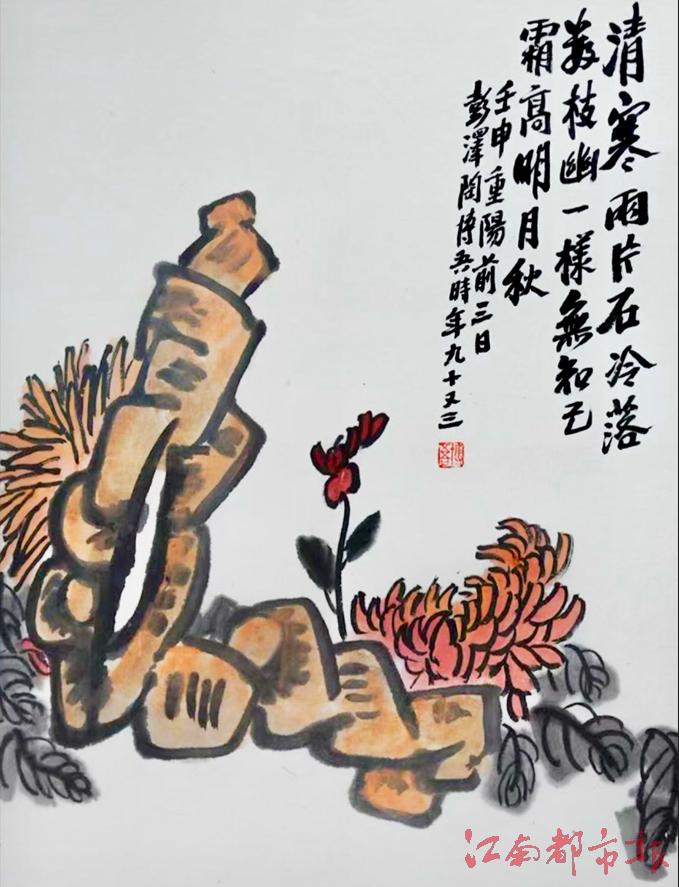 清寒兩片石冷落
数枝幽一樣無知己
霜高明月秋
壬申重陽前三日
彭澤陶博吾時年九十又三
江南都市报